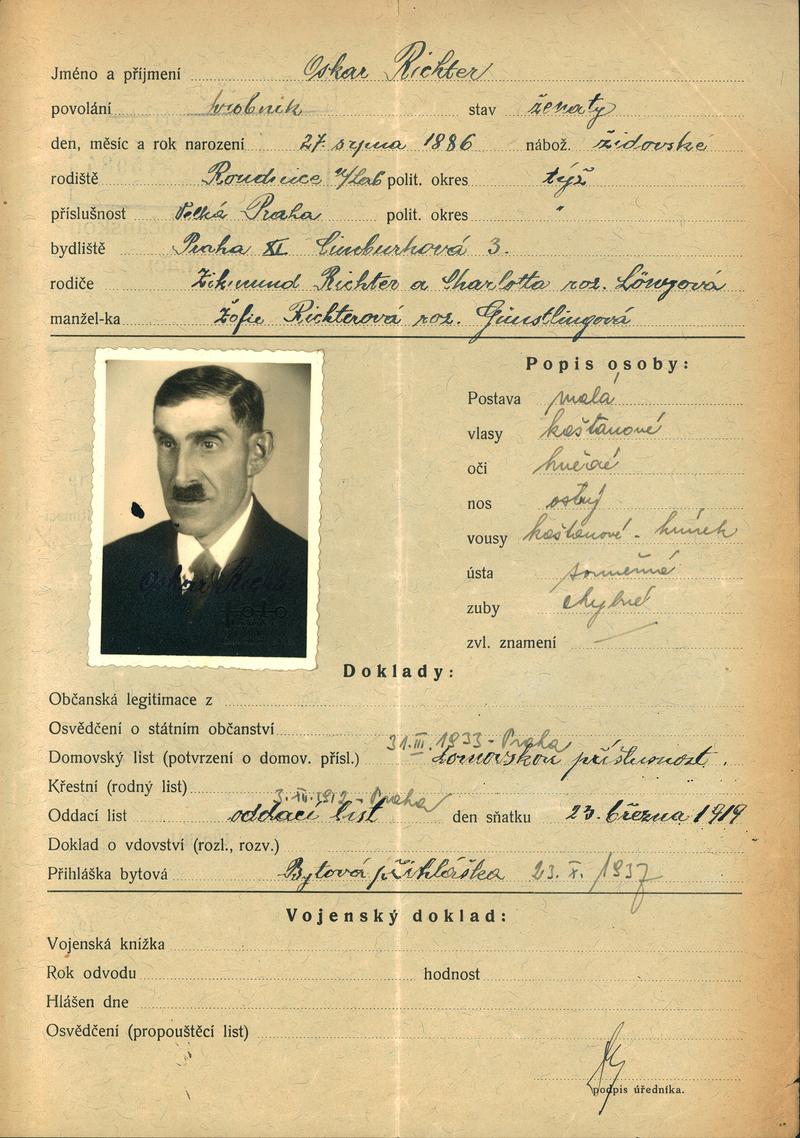 Jméno a příjmení Oskar Richter
povolání stav ženatý
den, měsíc a rok narození 27. srpna 1886 nábož. židovské
rodiště Roudnice n/Lab polit. okres týž
příslušnost Velká Praha polit. okres "
bydliště Praha XI Cimburkova 3.
rodiče Zikmund Richter a Charlotta roz. Löwyová
manžel-ka Žofie Richterová roz. Günstlingová
Popis osoby:
Postava malá
vlasy kaštanové
oči hnědé
nos ostrý
vousy kaštanové -
ústa souměrné
zuby chybné
zvl. znamení
Oskar Richter
Foto
Doklady:
Občanská legitimace z
Osvědčení o státním občanství
31. III. 1933 - Praha
Domovský list (potvrzení o domov. přísl.) domovskou příslušnost.
Křestní (rodný list)
Praha
Oddací list oddací list den sňatku 23. března 1919
Doklad o vdovství (rozl., rozv.)
Přihláška bytová Bytová přihláška 23. X. 1937
Vojenský doklad:
Vojenská knížka
Rok odvodu hodnost
Hlášen dne
Osvědčení (propouštěcí list)
podpis úředníka.